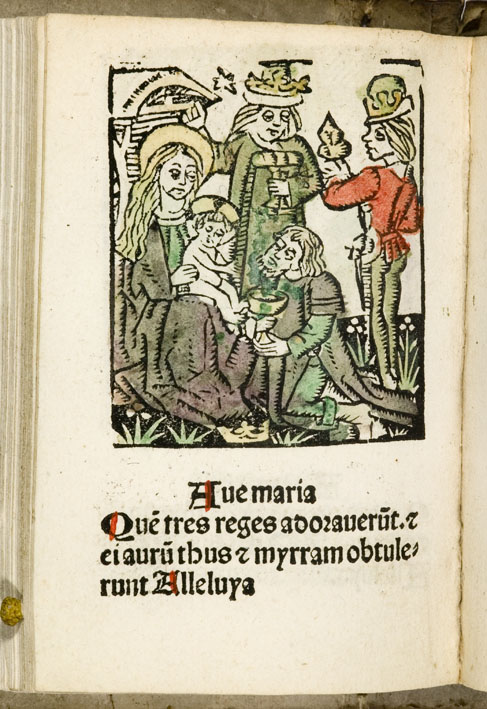 Aue maria
Quē tres reges adorauerūt. ⁊
ei aurū thus ⁊ myrram obtule⸗
runt Alleluya